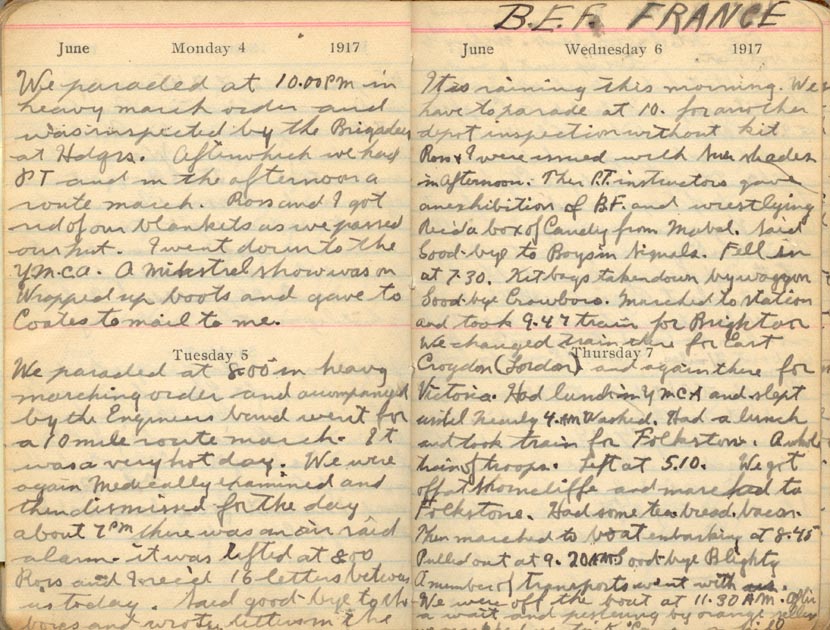 June Monday 4 1917
We paraded at 10.00PM in
heavy march order and
was inspected by the Brigadeer
at Hdqrs. Afterwhich we had
PT and in the afternoon a
route march. Ross and I got
rid of our blankets as we passed
our hut. I went down to the
Y.M.C.A. A minstrel show was on
Wrapped up boots and gave to
Coates to mail to me.
Tuesday 5
We paraded at 8.00 in heavy
marching order and accompanied
by the Engineers band went for
a 10 mile route march. It
was a very hot day. We were
again Medically examined and
then dismissed for the day
about 7 PM there was an air raid
alarm it was lifted at 8.00
Ross and I rec'd 16 letters between
us today. Said good-bye to the
boxes and wrote letters in the
B.E.F. FRANCE
June Wednesday 6 1917
It is raining this morning. We
have to parade at 10. for another
depot inspection without kit
Ross & I were issued with shades
in afternoon. Ther P.T. instructors gave
an exhibition of B.F. and wrestlying
Rec'd a box of Candy from Mabel. Said
Good-bye to Boys in Signals. Fell in
at 7.30. Kit bags taken down by waggon
Good-bye Crowboro. Marched to station
and took 9.47 train for Brighton
We changed train there for East
Thursday 7
Croydon (London) and again there for
Victoria. Had lunch in YMCA and slept
until nearly 4. AM Washed. Had a lunch
and took train for Folkstone. A whole
train of troops. Left at 5.10. We got
off at Shorncliffe and marched to
Folkstone. Had some tea. bread. bacon.
Then marched to boat embarking at 8.45
Pulled out at 9.20 AM. Good-bye Blighty
A number of transports went with us.
We were off the boat at 11.30 A.M. after
a wait and pestering by orange sellers